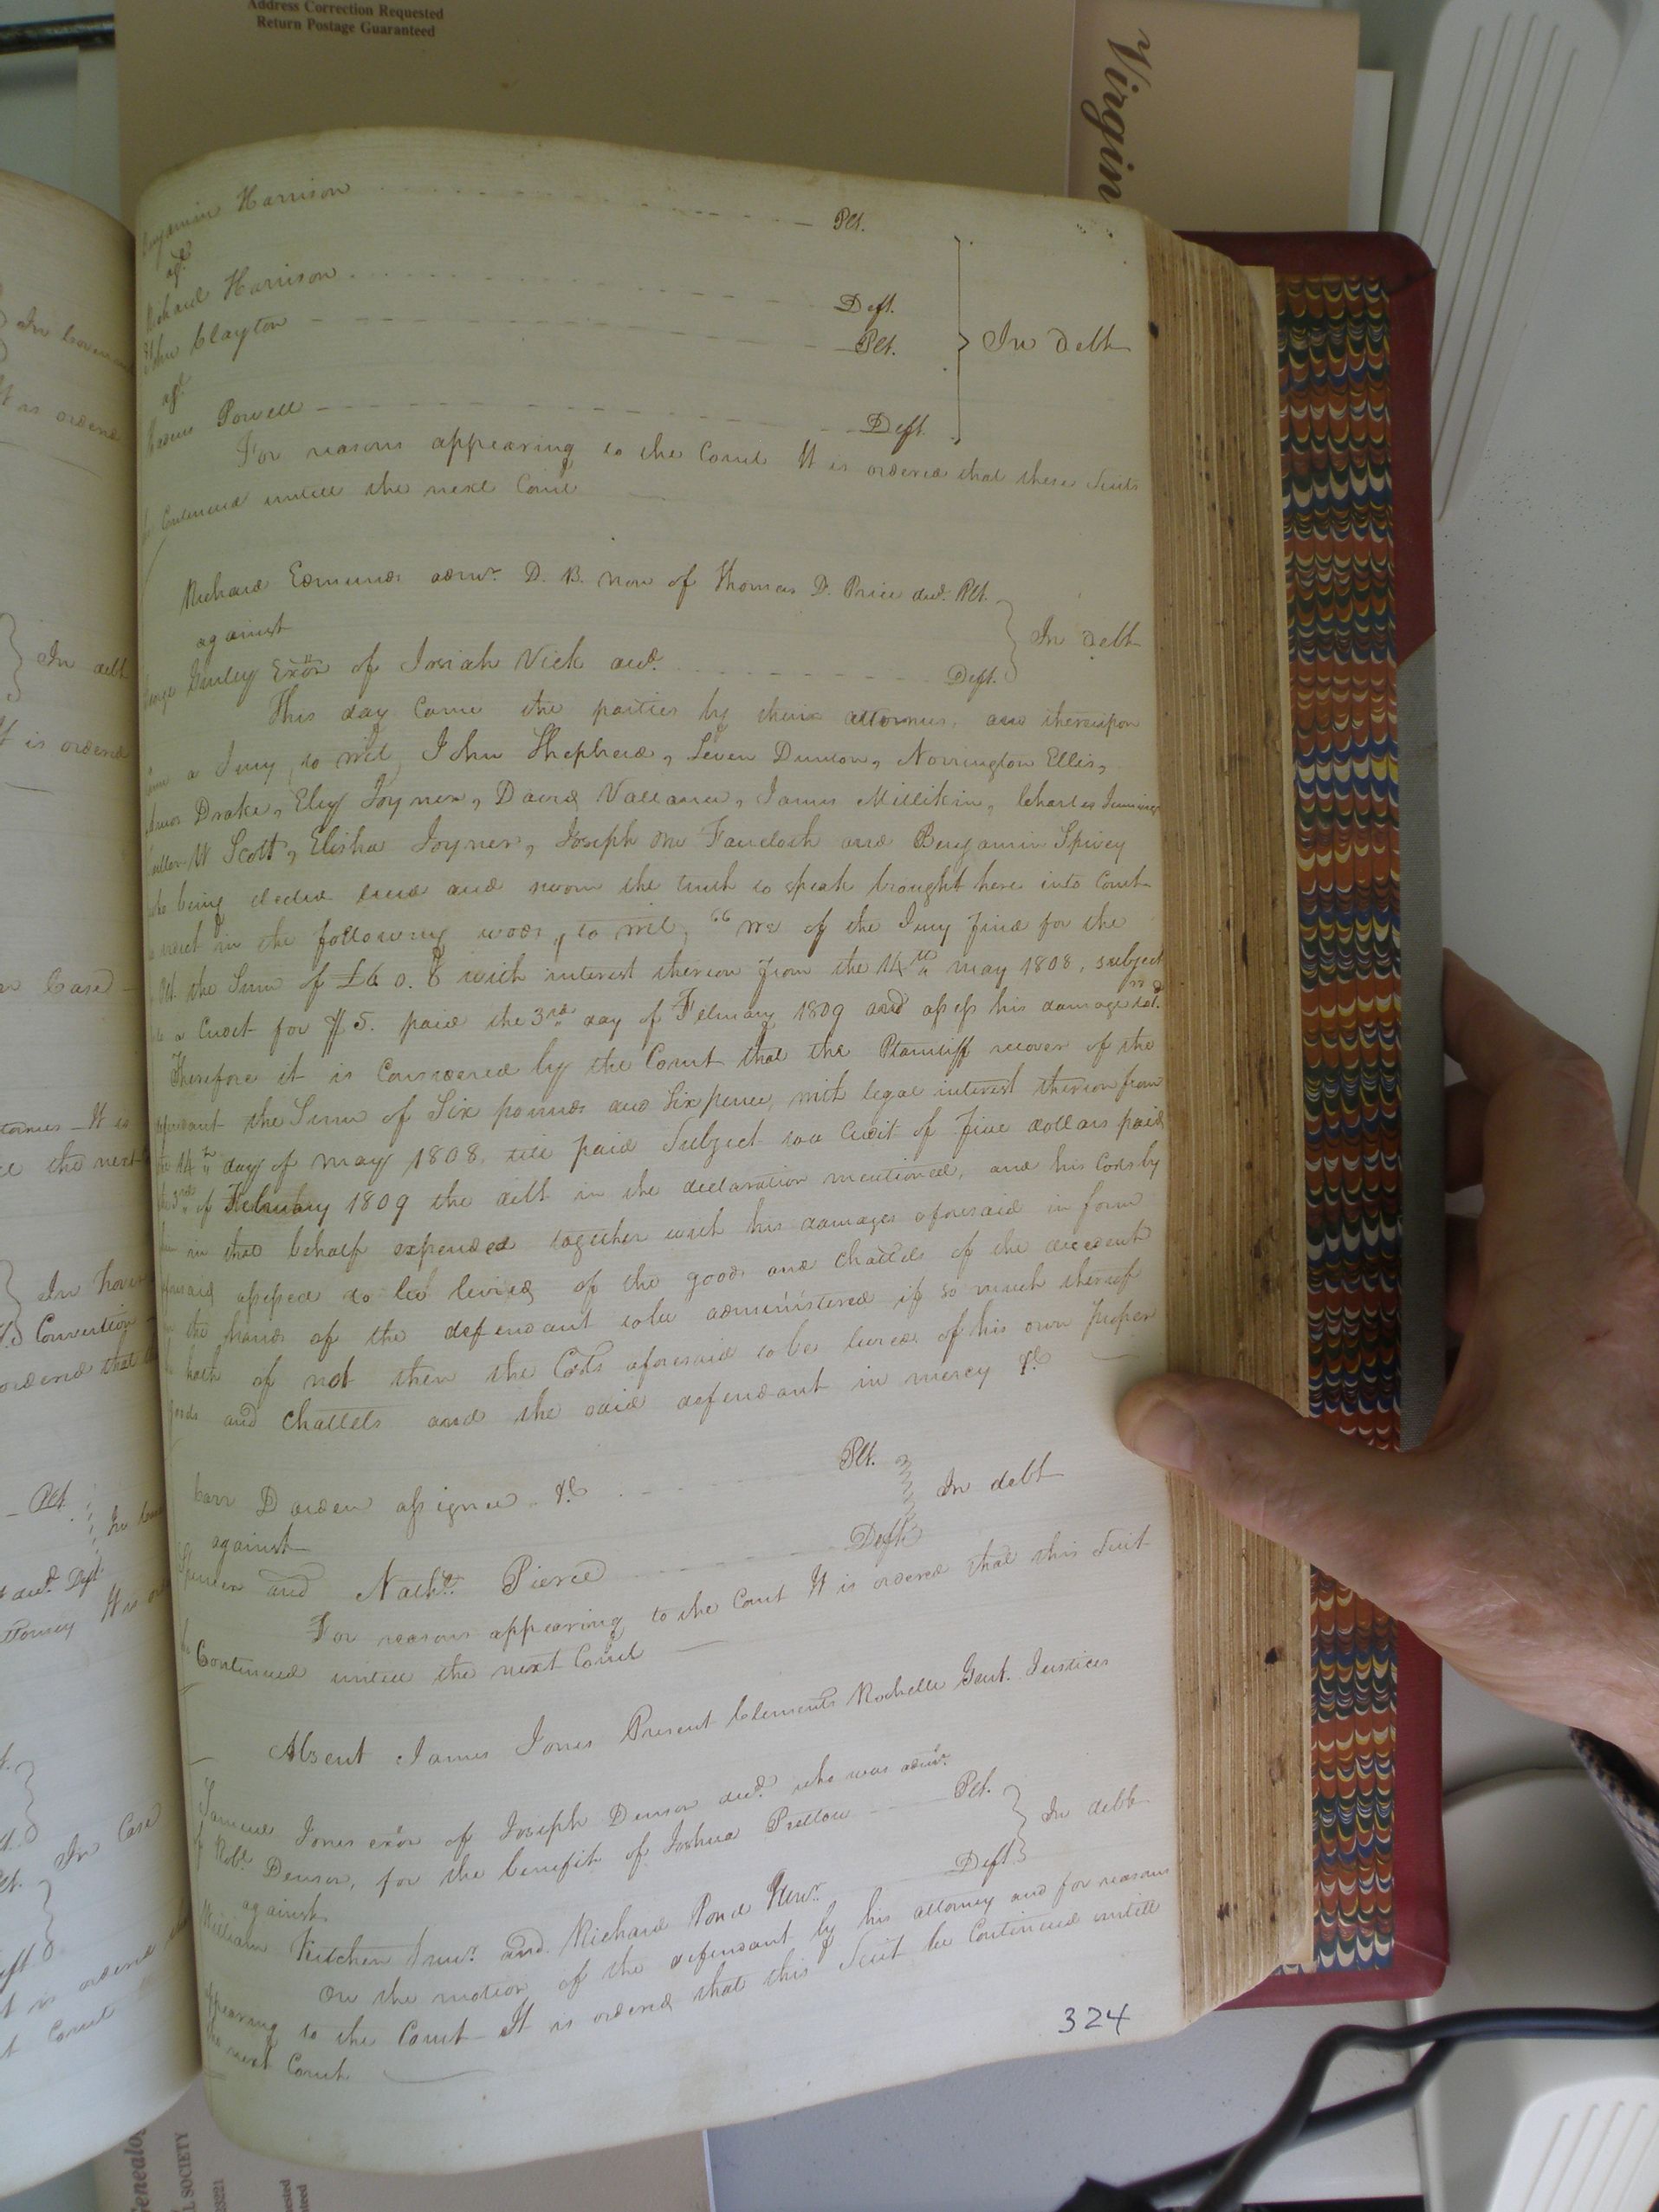 Address Correction Requested
Return Postage Guaranteed
Virgin
Benjamin Harrison Plt.
agt
Richard Harrison Deft.
John Clayton Plt.
agt
Powell Deft.
In debt
For reasons appearing to the Court It is ordered that these Suits
be Continued untill the next Court
Richard Edmunds admr. D. B. non of Thomas D. Price decd. Plt.
against
George Gurley Exōr of Josiah Vick decd. Deft.
In debt
This day Came the parties by their attornies, and thereupon
came a Jury, to wit, John Shepherd, Leven Dunton, Norrington Ellis,
Drake, Eley Joyner, David Vallance, James Millikin, Charles
W Scott, Elisha Joyner, Joseph Mc Faudoch and Benjamin Spivey
who being elected tried and sworn the truth to speak brought here into Court
a verdict in the following words, to wit, "we of the Jury find for the
Plt. the Sum of £6 0. 6 with interest thereon from the 14th may 1808, subject
to a Credit for $5. paid the 3rd day of February 1809 and assess his damage to 1d.
Therefore it is Considered by the Court that the Plaintiff recover of the
defendant the Sum of Six pounds and Six pence, with legal interest thereon from
the 14th day of may 1808. till paid Subject to a Credit of five dollars paid
the 3rd of February 1809 the debt in the declaration mentioned, and his Costs by
him in that behalf expended together with his damages aforesaid in form
aforesaid assessed to be levied of the goods and chattels of the decedent
in the hands of the defendant to be administered if so much thereof
he hath if not then the Costs aforesaid to be levied of his own proper
goods and chattels and the said defendant in mercy &c
Carr Darden assignee &c Plt.
against
Spencer and Nathl. Pierce Deft.
In debt
For reasons appearing to the Court It is ordered that this Suit
be Continued untill the next Court
Absent James Jones Present Clements Rochelle Gent. Justices
Samuel Jones exōr of Joseph Denson decd. who was admr.
of Robt. Denson, for the benefit of Joshua Pretlow Plt.
against
William Kitchen Junr. and Richard Pond Deft.
In debt
On the motion of the defendant by his attorney and for reasons
appearing to the Court It is ordered that this Suit be Continued untill
the next Court
324
In debt
It is ordered
In Case
Plt.
SOCIETY
23221